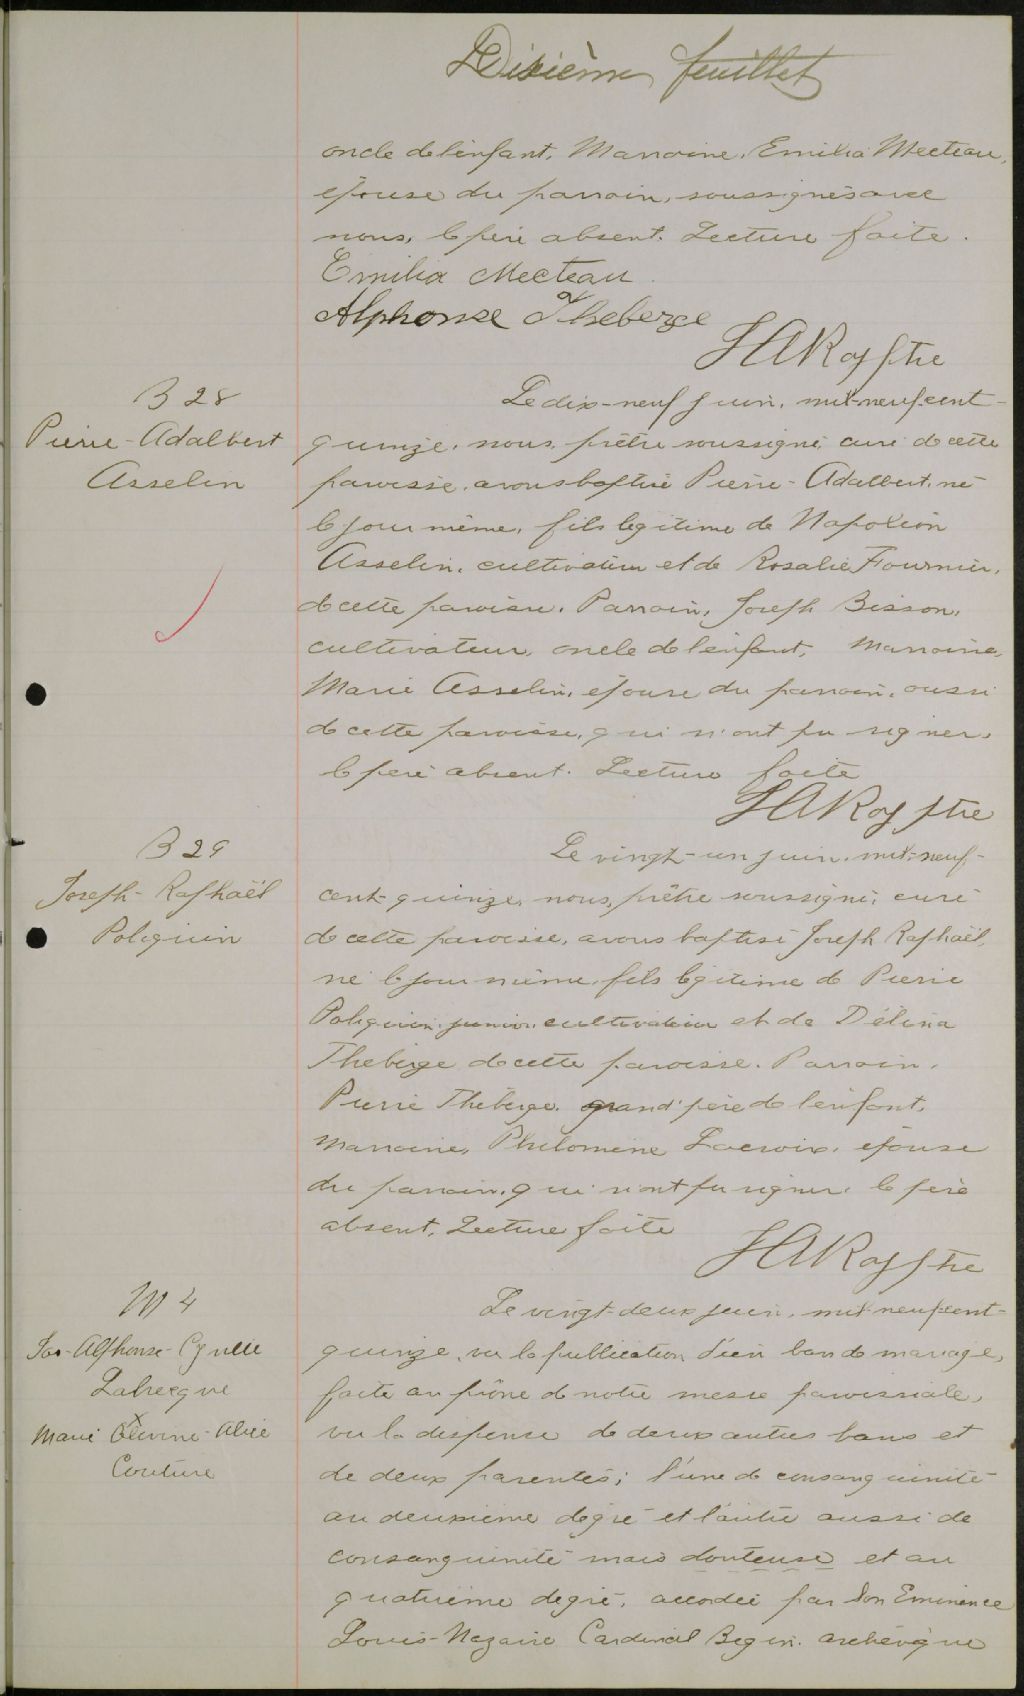 Dixième feuillet
oncle de l'enfant, Marraine, Emilia Mecteau,
épouse du parrain, soussignés avec
nous, le père absent. Lecture faite.
Emilia Mecteau
Alphonse Theberge
JARoy ptre
B 28
Pierre-Adalbert
Asselin
Le dix-neuf juin, mil-neuf-cent-
quinze, nous, prêtre soussigné, curé de cette
paroisse, avons baptisé Pierre-Adalbert, né
le jour même, fils légitime de Napoléon
Asselin, cultivateur et de Rosalie Fournier,
de cette paroisse. Parrain, Joseph Bisson,
cultivateur, oncle de l'enfant, Marraine,
Marie Asselin, épouse du parrain, aussi
de cette paroisse, qui n'ont pu signer,
le père absent. Lecture faite
JARoy ptre
B 29
Joseph-Raphaël
Poliquin
Le vingt-un juin, mil-neuf-
cent-quinze, nous, prêtre soussigné, curé
de cette paroisse, avons baptisé Joseph Raphaël,
né le jour même, fils légitime de Pierre
Poliquin, junior, cultivateur et de Délina
Theberge de cette paroisse. Parrain,
Pierre Théberge, grand'père de l'enfant,
Marraine, Philomène Lacroix, épouse
du parrain, qui n'ont pu signer, le père
absent, Lecture faite
JARoy ptre
M 4
Jos-Alphonse-Cyrille
Labrecque
Marie Alice
Couture
Le vingt-deux juin, mil-neuf-cent-
quinze, vu la publication d'un ban de mariage,
faite au prône de notre messe paroissiale,
vu la dispense de deux autres bans et
de deux parentés; l'une de consanguinité
au deuxième degré et l'autre aussi de
consanguinité mais douteuse et au
quatrième degré, accordée par Son Eminence
Louis-Nazaire Cardinal Begin, archévêque